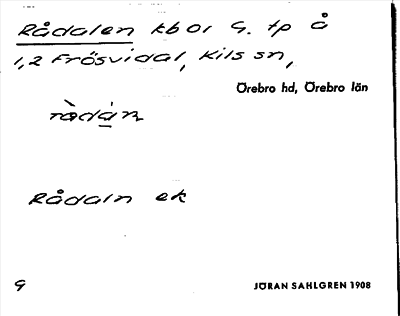 Rådalen kbor G. tp å
1,2 Frösvidal, Kils sn,
Örebro hd, Örebro län
Rådaln ek
G
JÖRAN SAHLGREN 1908